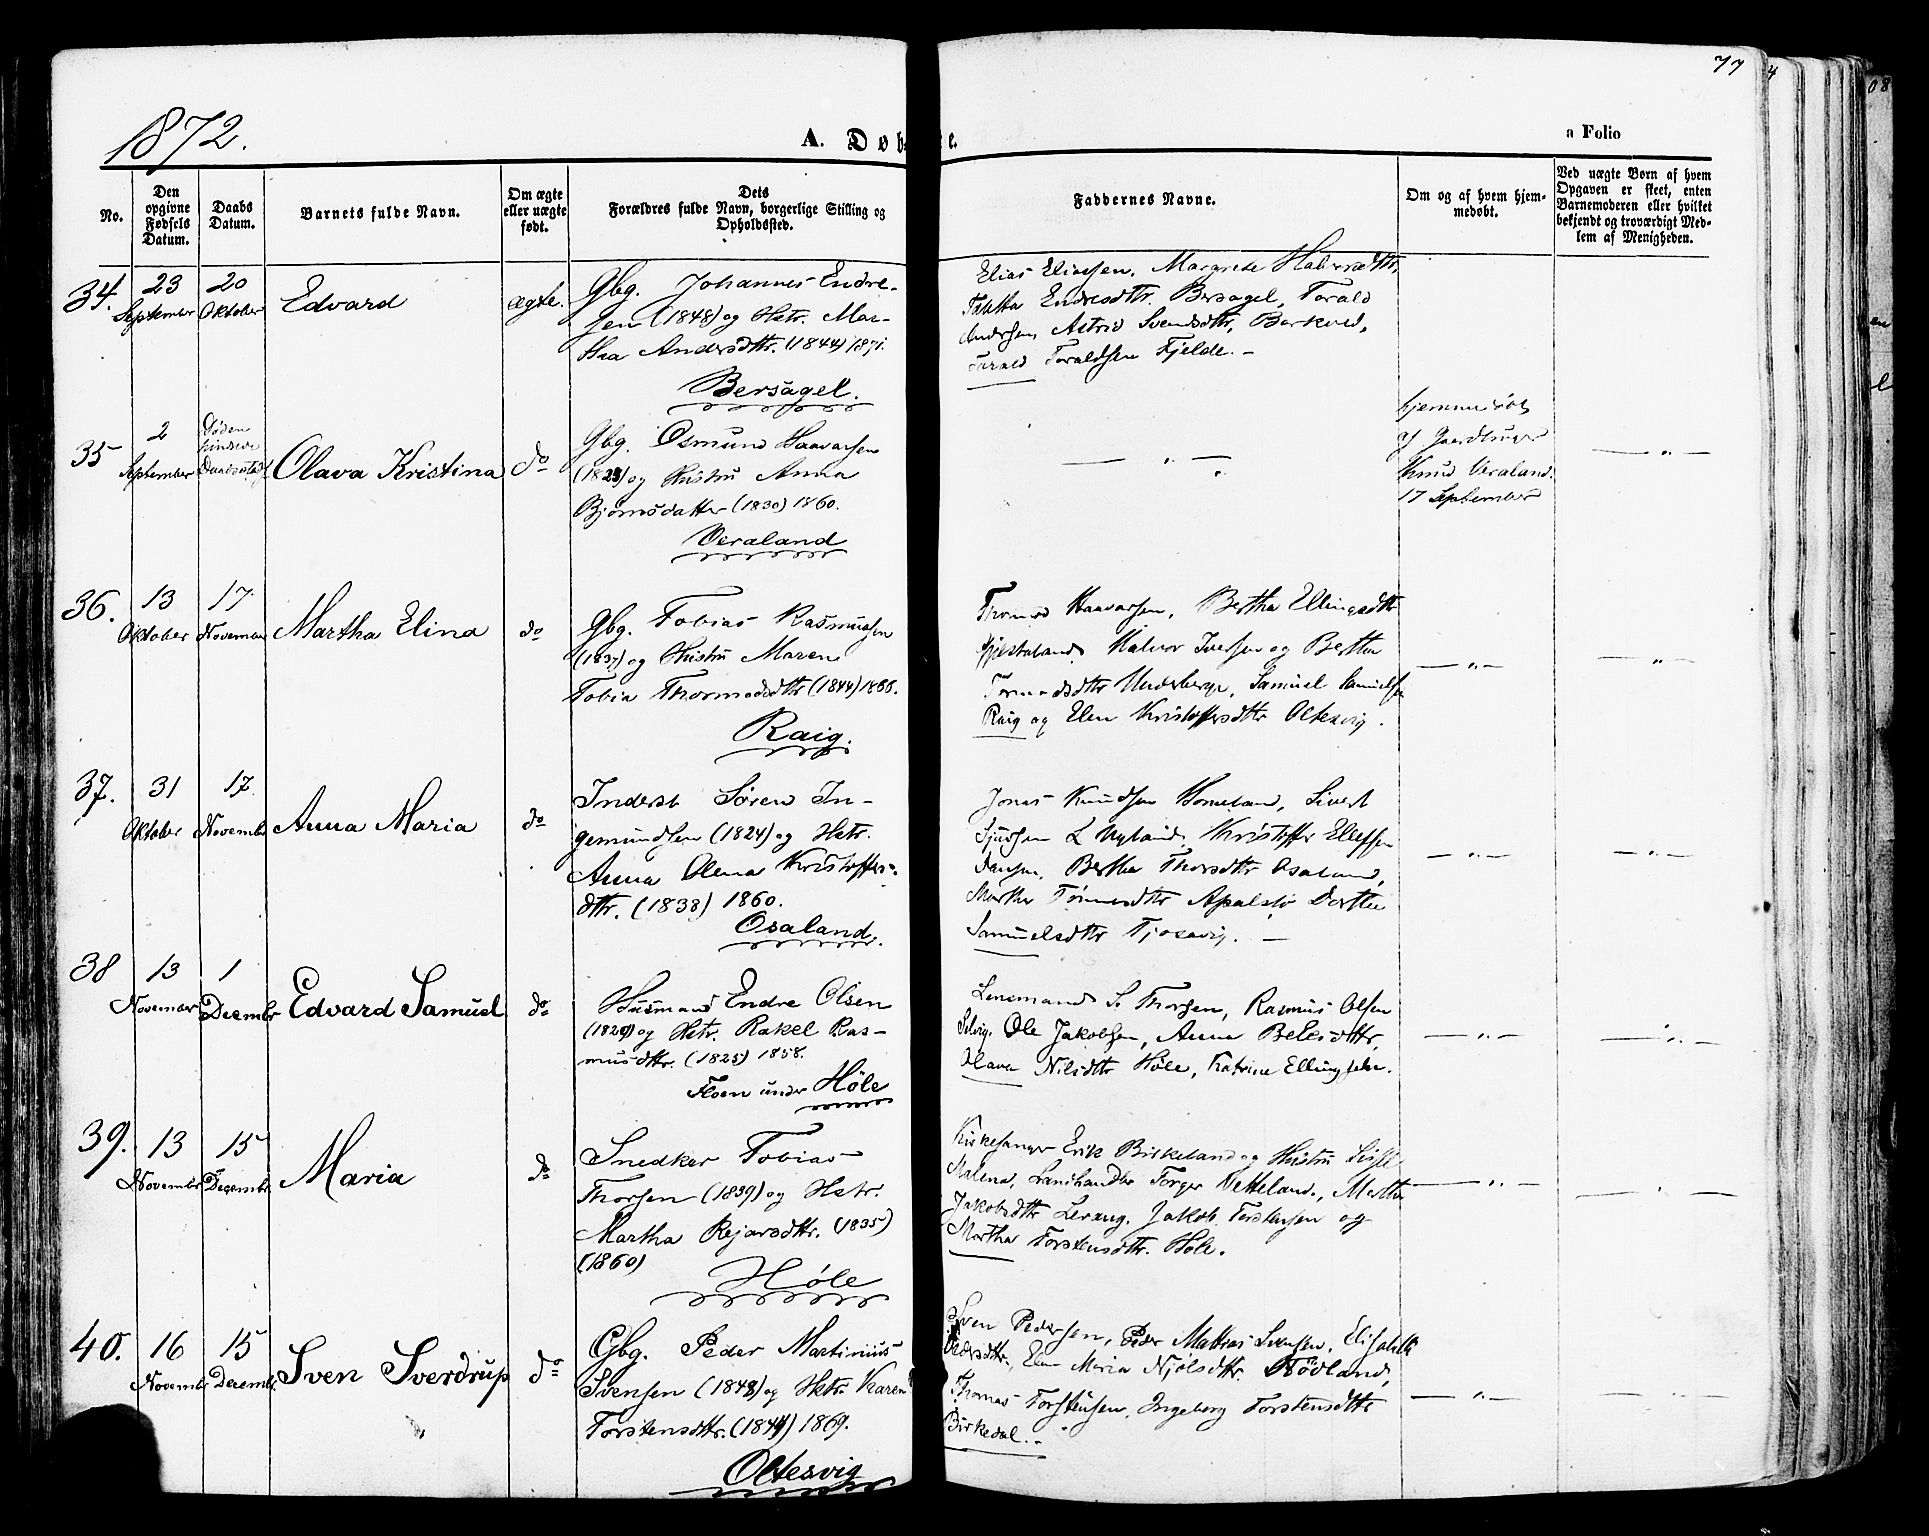 77
1872.
A. Døb
e.
a Folio
No.
Den
opgivne
Fødsels
Datum.
Daabs
Datum.
Barnets fulde Navn.
Om ægte
eller uægte
født.
Dets
Forældres fulde Navn, borgerlige Stilling og
Opholdssted.
Faddernes Navne.
Om og af hvem hjem-
medøbt.
Ved uægte Børn af hvem
Opgaven er skeet, enten
Barnemoderen eller hvilket
bekjendt og troværdigt Med-
lem af Menigheden.
34.
23
September
20
Oktober
Edvard
ægte.
Gbg. Johannes Endre-
sen (1848) og Hstr. Mar-
tha Andersdttr. (1844) 1871.
Bersagel.
Elias Eliassen, Margrete
Endresdttr. Bersagel, Torald
Andersen, Astrid Svendsdttr,
Toraldsen Fjelde. -
35
2
September
Døden
hindrede
Olava Kristina
do
Gbg. Osmund Haavarsen
og Hustru Anna
Bjørnsdatter (1830) 1860.
Veraland
— „ —
„
hjemmedøbt
af Gaardbruger
Knud Veraland.
17 September
— „ —
36.
13
Oktober
17
November
Martha Elina
do
Gbg. Tobias Rasmussen
(1837) og Hustru Maren
Tobia Thormodsdttr (1844) 1866.
Raig.
Haavarsen, Bertha Ellingsdttr
Halvor Iversen og Bertha
Tormodsdttr Underberge, Samuel Samuelsen
Raig og Elen Kristoffersdttr Oltesvig.
— „ —
— „ —
37.
31
Oktober
17.
Novembr
Anna Maria
do
Inderst Søren In-
gemundsen (1824) og Hstr.
Anna Olena Kristoffers-
dttr. (1838) 1860.
Osaland.
Jonas Knudsen Homeland, Sivert
Sjursen Kristoffer Ellefsen
Bertha Thorsdttr Osaland,
Martha Apalstø Dorthe
Samuelsdttr Tjosavig. —
— „ —
— „ —
38
13
November
1
Decembr
Edvard Samuel
do
Husmand Endre Olsen
og Hstr. Rakel Ras-
musdttr. (1825) 1858.
Floen under Høle
Lensmand S. Thorsen, Rasmus Olsen
Selvig. Ole Jakobsen, Anna
Olava Nilsdttr Høle, Katrine
— „ —
— „ —
39.
13
Novembr
15
Decembr.
Maria
do
Snedker Tobias
Thorsen (1839) og Hstr.
Martha Rejarsdttr. (1835)
(1860)
Høle
Kirkesanger Erik Birkeland og Hustru
Malena, Landhandler Torger Vetteland, Martha
Jakobsdttr Lerang, Jakob Torstensen og
Martha Torstensdttr. Høle.
— „ —
— „ —
40.
16
Novembr
15
Decembr.
Sven Sverdrup
do
Gbg. Peder Martinius
Svensen (1848) og Hstr Karen
Torstensdttr. 1869.
Oltesvig
Sven Pedersen, Peder Mathias Svensen, Elisabeth
Maria Njølsdttr. Nødland,
Thomas Torstensen, Ingeborg Torstensdttr
Birkedal. -
— „ —